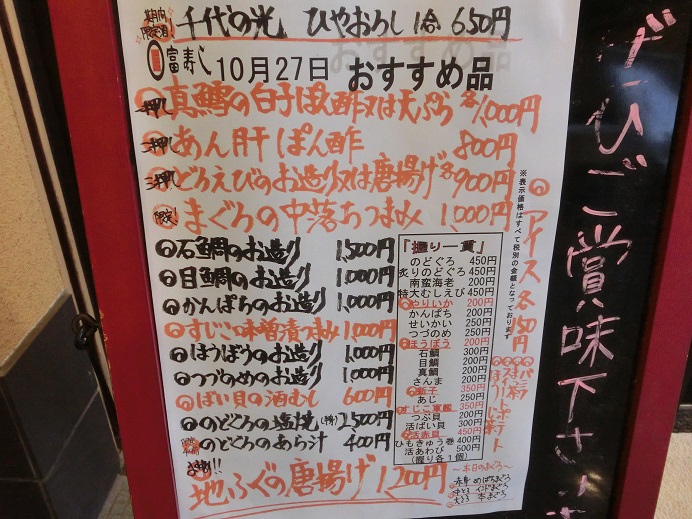 期間限定酒! 千代の光 ひやおろし 1合 650円
富寿し 10月27日 おすすめ品
一押し 真鱈の白子ぽん酢又は天ぷら 各1,000円
二押し あん肝ぽん酢 800円
三押し どろえびのお造り又は唐揚げ 各900円
限定! まぐろの中落ちつまみ 1,000円
石鯛のお造り 1,500円
目鯛のお造り 1,000円
かんぱちのお造り 1,000円
すじこ味噌漬つまみ 1,000円
ほうぼうのお造り 1,000円
つづのめのお造り 1,000円
ばい貝の酒むし 600円
のどぐろの塩焼(特) 2,500円
のどぐろのあら汁 400円
地ふぐの唐揚げ 1,200円
「握り一貫」
のどぐろ 450円
炙りのどぐろ 450円
南蛮海老 200円
特大むしえび 450円
やりいか 200円
かんぱち 200円
せいかい 250円
つづのめ 250円
ほうぼう 200円
石鯛 300円
目鯛 200円
真鯛 200円
さんま 200円
新子 350円
あじ 250円
すじこ軍艦 350円
つぶ貝 200円
活ばい貝 300円
活赤貝 450円
ひもきゅう巻 400円
活あわび 500円
(握り各1個)
※表示価格はすべて税別の金額となっております
アイス 各150円
バニラ
抹茶
〜本日のまぐろ〜
赤身 めばちまぐろ
中とろ インドまぐろ
大とろ 本まぐろ
ぜひご賞味下さい